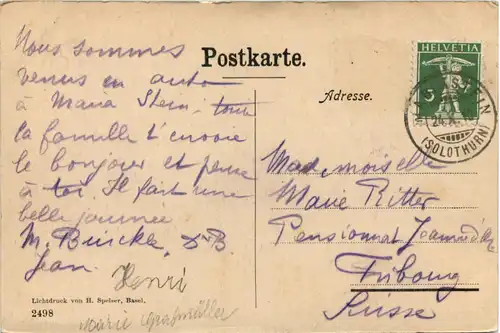 Postkarte.
Adresse.
HELVETIA
5
(SOLOTHURN)
Nous sommes
venus en auto
à Maria Stein: toute
la famille t'envoie
le bonjour et pense
à toi Il fait une
belle journée
M. Bürcke
Jean. Henri
Mademoiselle
Marie Ritter
Pensionnat Jeanne d'Arc
Fribourg
Suisse
Lichtdruck von H. Speiser, Basel.
2498
Marie